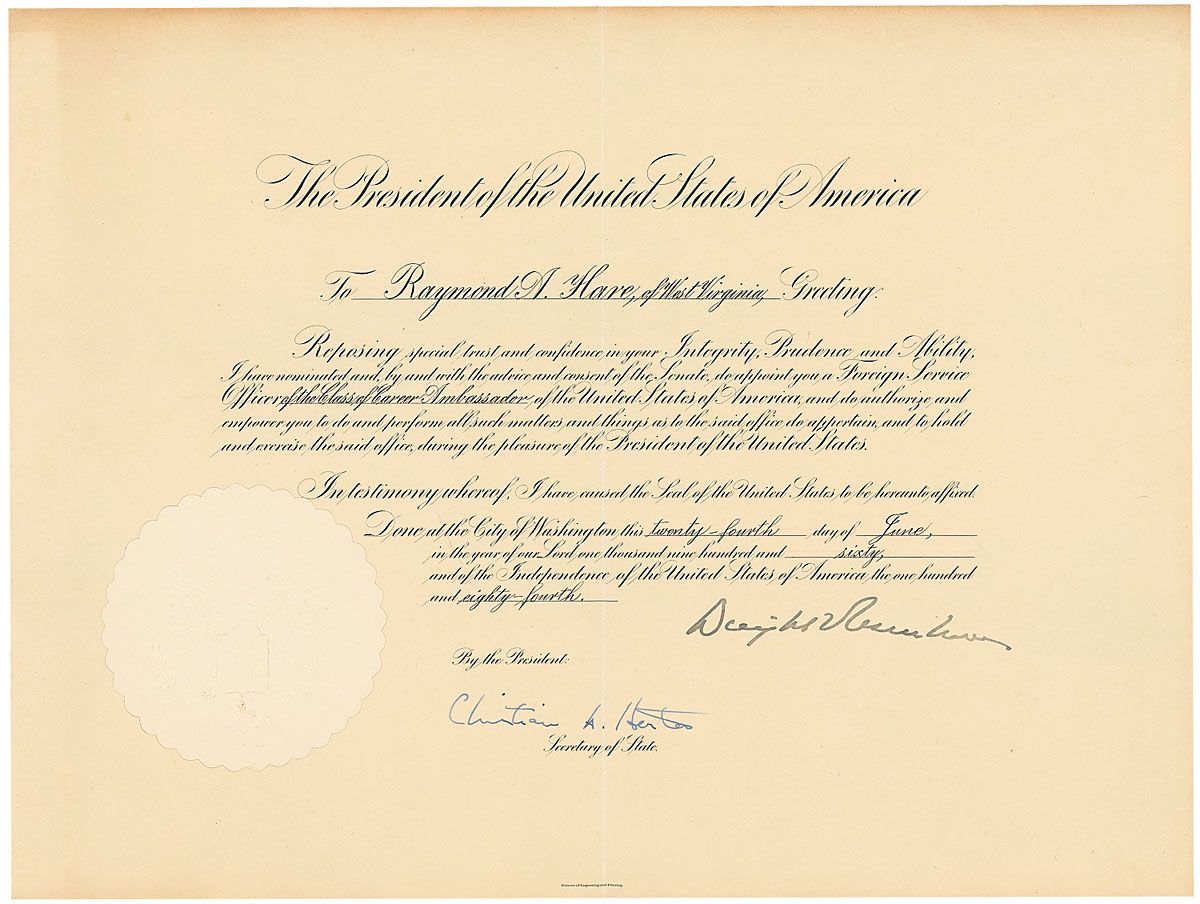 The President of the United States of America
To Raymond A. Hare, of West Virginia, Greeting:
Reposing special trust and confidence in your Integrity, Prudence and Ability,
I have nominated and, by and with the advice and consent of the Senate, do appoint you a Foreign Service
Officer of the Class of Career Ambassador, of the United States of America, and do authorize and
empower you to do and perform all such matters and things as to the said office do appertain, and to hold
and exercise the said office, during the pleasure of the President of the United States.
In testimony whereof, I have caused the Seal of the United States to be hereunto affixed.
Done at the City of Washington this twenty-fourth day of June,
in the year of our Lord one thousand nine hundred and sixty,
and of the Independence of the United States of America the one hundred
and eighty-fourth.
Dwight D Eisenhower
By the President:
Christian A. Herter
Secretary of State.
Bureau of Engraving and Printing.